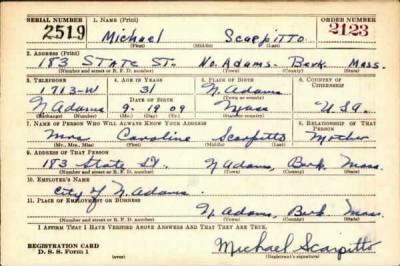 SERIAL NUMBER 1. NAME (Print) ORDER NUMBER
2519 Michael Scarpitto 2123
(First) (Middle) (Last)
2. ADDRESS (Print)
183 STATE ST. No. Adams - Berk. Mass.
(Number and street or R. F. D. number) (Town) (County) (State)
3. TELEPHONE 4. AGE IN YEARS 5. PLACE OF BIRTH 6. COUNTRY OF CITIZENSHIP
1713-W 31 N. Adams
DATE OF BIRTH (Town or county)
N. Adams 9. 19 09 Mass U.S.A.
(Exchange) (Number) (Mo.) (Day) (Yr.) (State or country)
7. NAME OF PERSON WHO WILL ALWAYS KNOW YOUR ADDRESS 8. RELATIONSHIP OF THAT PERSON
Mrs Caroline Scarpitto Mother
(Mr., Mrs., Miss) (First) (Middle) (Last)
9. ADDRESS OF THAT PERSON
183 State St. N Adams, Berk. Mass.
(Number and street or R. F. D. number) (Town) (County) (State)
10. EMPLOYER'S NAME
City of N. Adams.
11. PLACE OF EMPLOYMENT OR BUSINESS
N. Adams, Berk. Mass.
(Number and street or R. F. D. number) (Town) (County) (State)
I AFFIRM THAT I HAVE VERIFIED ABOVE ANSWERS AND THAT THEY ARE TRUE.
REGISTRATION CARD Michael Scarpitto
D. S. S. FORM 1 (over) (Registrant's signature)